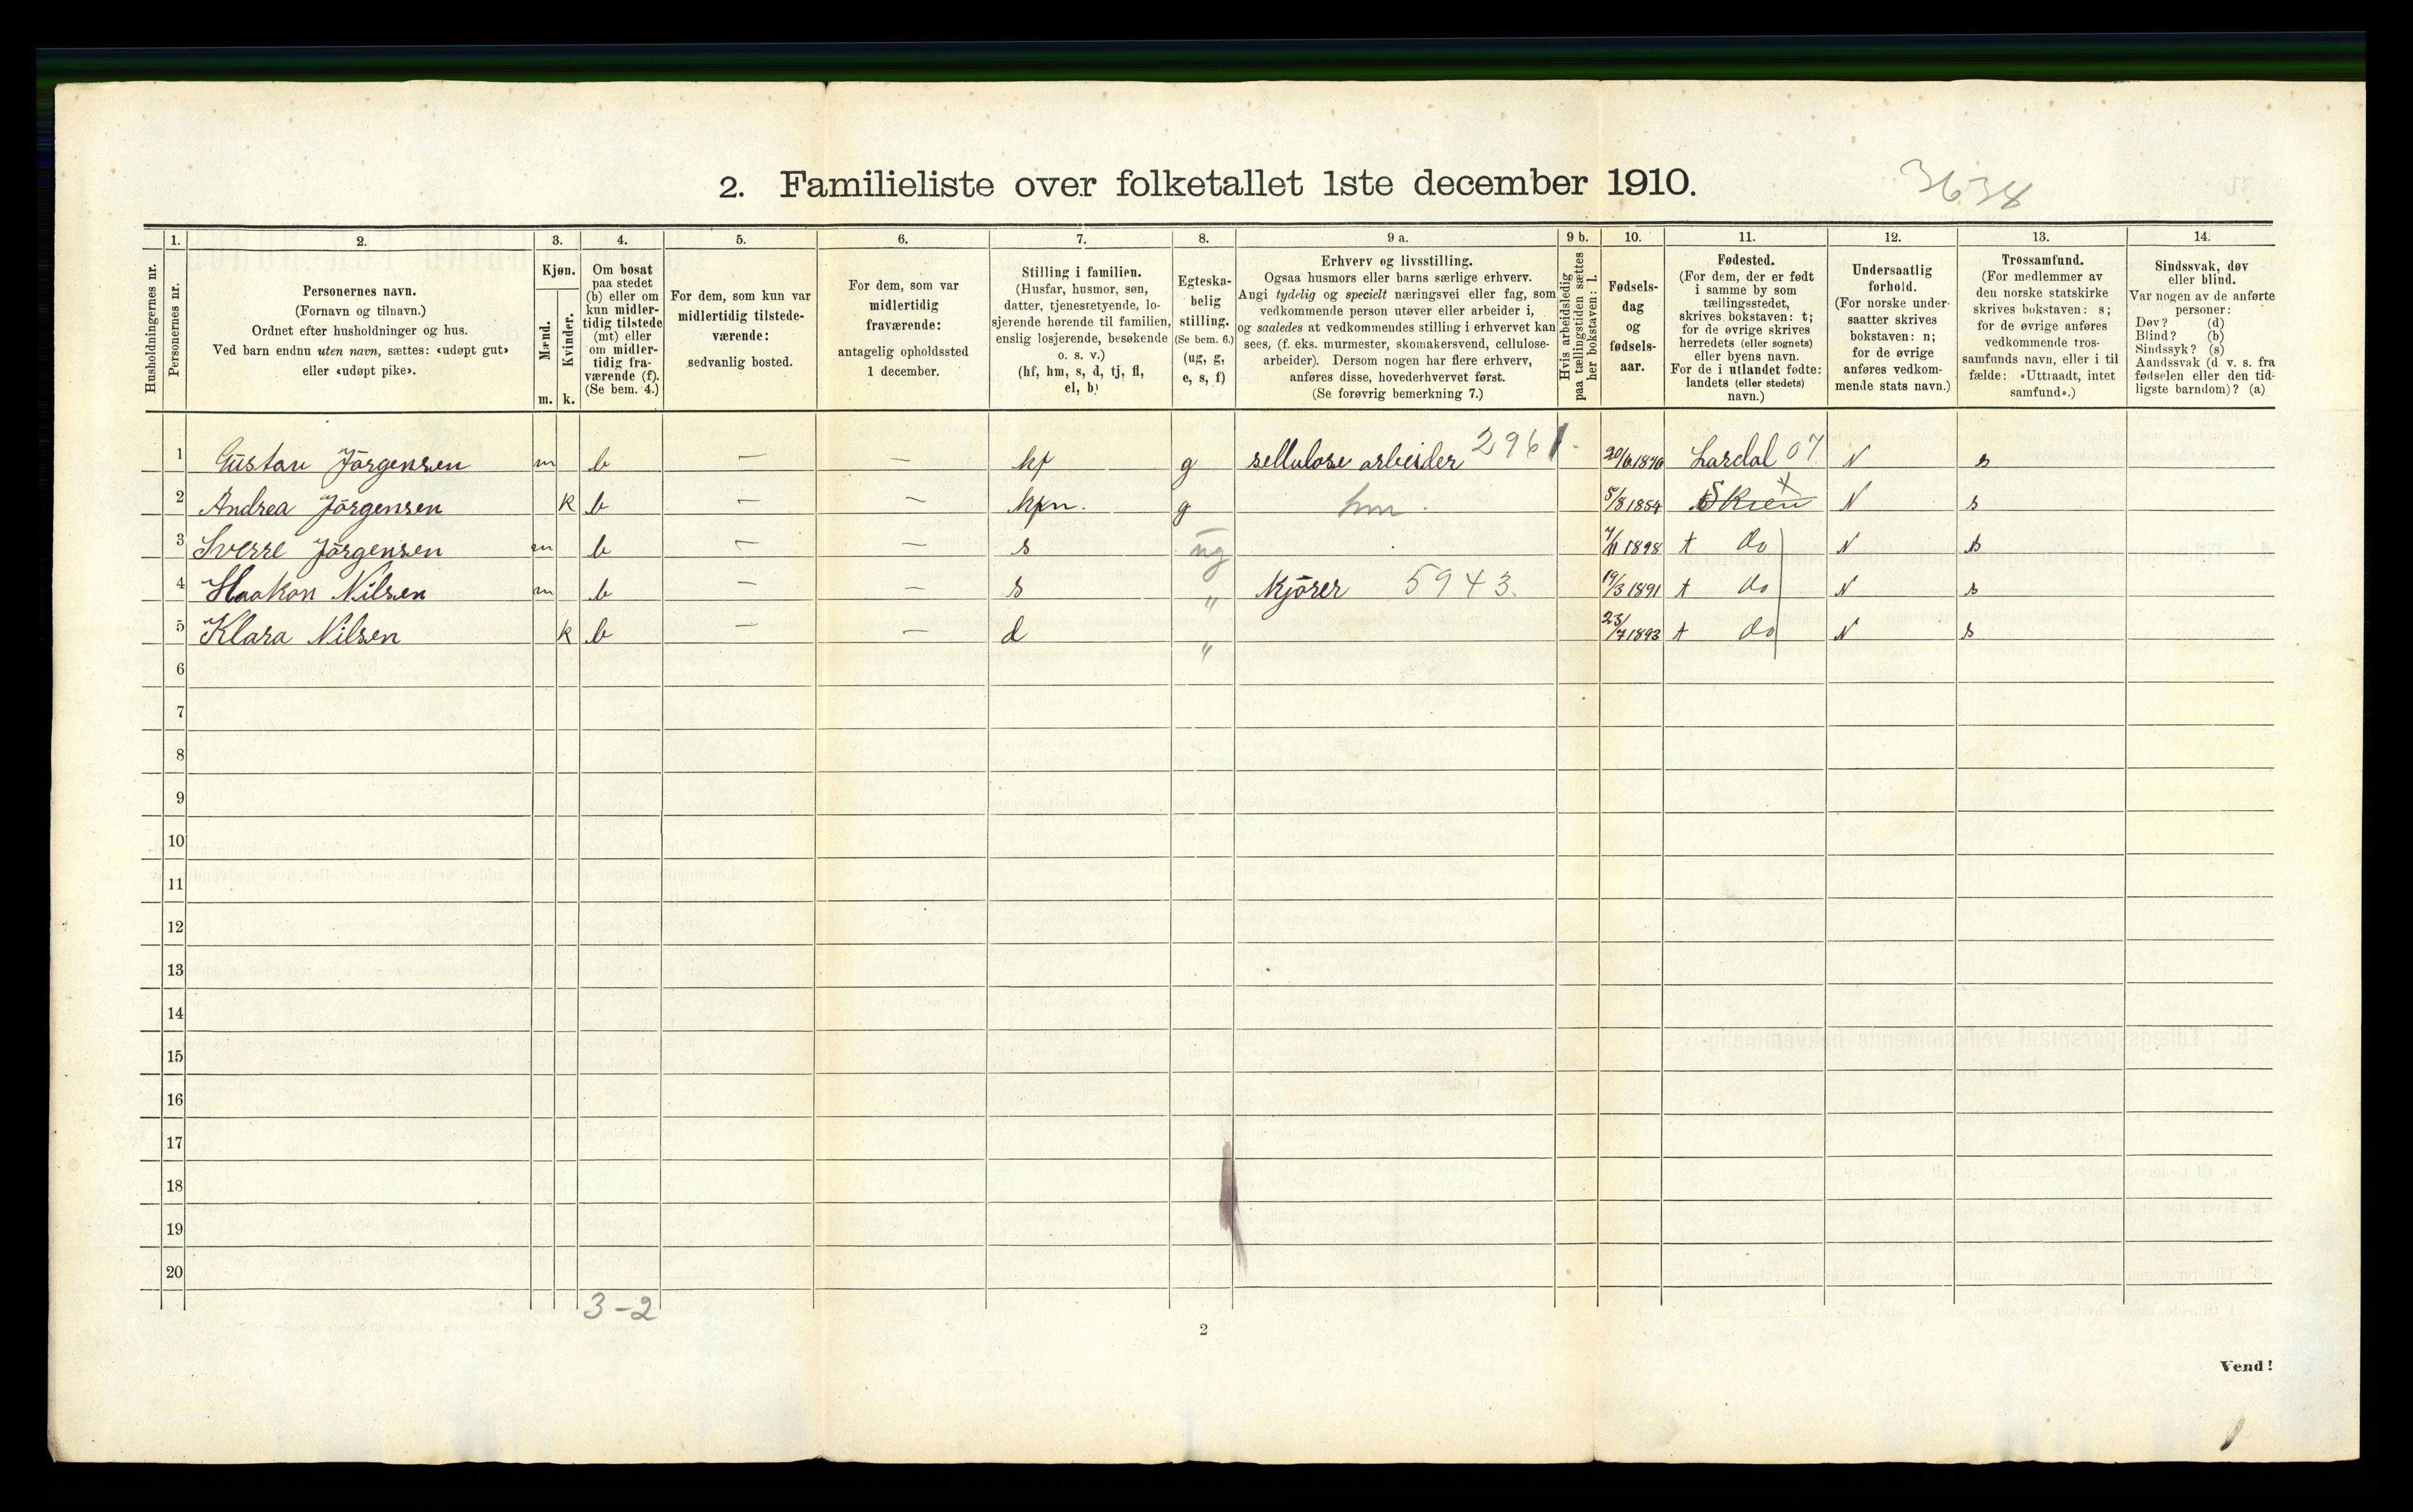 2. Familieliste over folketallet 1ste december 1910.
3638
1. 2. 3. 4. 5. 6. 7. 8. 9 a. 9 b. 10. 11. 12. 13. 14.
Husholdningernes nr.
Personernes nr.
Personernes navn.
(Fornavn og tilnavn.)
Ordnet efter husholdninger og hus.
Ved barn endnu uten navn, sættes: «udøpt gut»
eller «udøpt pike».
Kjøn.
Mænd.
Kvinder.
m. k.
Om bosat
paa stedet
(b) eller om
kun midler-
tidig tilstede
(mt) eller
om midler-
tidig fra-
værende (f).
(Se bem. 4.)
For dem, som kun var
midlertidig tilstede-
værende:
sedvanlig bosted.
For dem, som var
midlertidig
fraværende:
antagelig opholdssted
1 december.
Stilling i familien.
(Husfar, husmor, søn,
datter, tjenestetyende, lo-
sjerende hørende til familien,
enslig losjerende, besøkende
o. s. v.)
(hf, hm, s, d, tj, fl,
el, b)
Egteska-
belig
stilling.
(Se bem. 6.)
(ug, g,
e, s, f)
Erhverv og livsstilling.
Ogsaa husmors eller barns særlige erhverv.
Angi tydelig og specielt næringsvei eller fag, som
vedkommende person utøver eller arbeider i,
og saaledes at vedkommendes stilling i erhvervet kan
sees, (f. eks. murmester, skomakersvend, cellulose-
arbeider). Dersom nogen har flere erhverv,
anføres disse, hovederhvervet først.
(Se forøvrig bemerkning 7.)
Hvis arbeidsledig
paa tællingstiden sættes
her bokstaven: l.
Fødsels-
dag
og
fødsels-
aar.
Fødested.
(For dem, der er født
i samme by som
tællingsstedet,
skrives bokstaven: t;
for de øvrige skrives
herredets (eller sognets)
eller byens navn.
For de i utlandet fødte:
landets (eller stedets)
navn.)
Undersaatlig
forhold.
(For norske under-
saatter skrives
bokstaven: n;
for de øvrige
anføres vedkom-
mende stats navn.)
Trossamfund.
(For medlemmer av
den norske statskirke
skrives bokstaven: s;
for de øvrige anføres
vedkommende tros-
samfunds navn, eller i til
fælde: «Uttraadt, intet
samfund».)
Sindssvak, døv
eller blind.
Var nogen av de anførte
personer:
Døv? (d)
Blind? (b)
Sindssyk? (s)
Aandssvak (d. v. s. fra
fødselen eller den tid-
ligste barndom)? (a)
1 Gustav Jørgensen m b — — hf g sellulose arbeider 2961. Lardal 07 N s
2 Andrea Jørgensen k b — — g hm. 5/8 1854 Skien N s
3 Sverre Jørgensen m b — — s ug 1898 t do N s
4 Haakon Nilsen m b — — s " Kjører 5943. 19/3 1891 t do N s
5 Klara Nilsen k b — — d " 23/7 1893 t do N s
6
7
8
9
10
11
12
13
14
15
16
17
18
19
20
3-2
2
Vend!